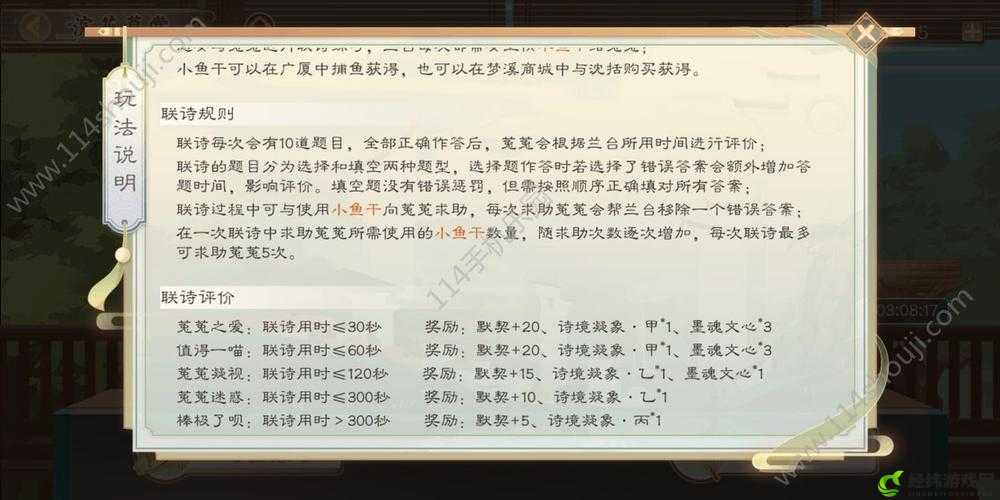 小鱼干可以在广厦中捕鱼获得，也可以在梦溪商城中与沈括购买获得。
玩法说明
联诗规则
联诗每次会有10道题目，全部正确作答后，菟菟会根据兰台所用时间进行评价；
联诗的题目分为选择和填空两种题型，选择题作答时若选择了错误答案会额外增加答
题时间，影响评价。填空题没有错误惩罚，但需按照顺序正确填对所有答案；
联诗过程中可与使用小鱼干向菟菟求助，每次求助菟菟会帮兰台移除一个错误答案；
在一次联诗中求助菟菟所需使用的小鱼干数量，随求助次数逐次增加，每次联诗最多
可求助菟菟5次。
联诗评价
菟菟之爱：联诗用时≤30秒 奖励：默契+20、诗境凝象·甲*1、墨魂文心*3
值得一喵：联诗用时≤60秒 奖励：默契+20、诗境凝象·甲*1、墨魂文心*3
菟菟凝视：联诗用时≤120秒 奖励：默契+15、诗境凝象·乙*1、墨魂文心*1
菟菟迷惑：联诗用时≤300秒 奖励：默契+10、诗境凝象·乙*1
棒极了呗：联诗用时＞300秒 奖励：默契+5、诗境凝象·丙*1
03:08:17
www.114shouji.com
114手机乐园
www.114shouji.com
经纬游戏网